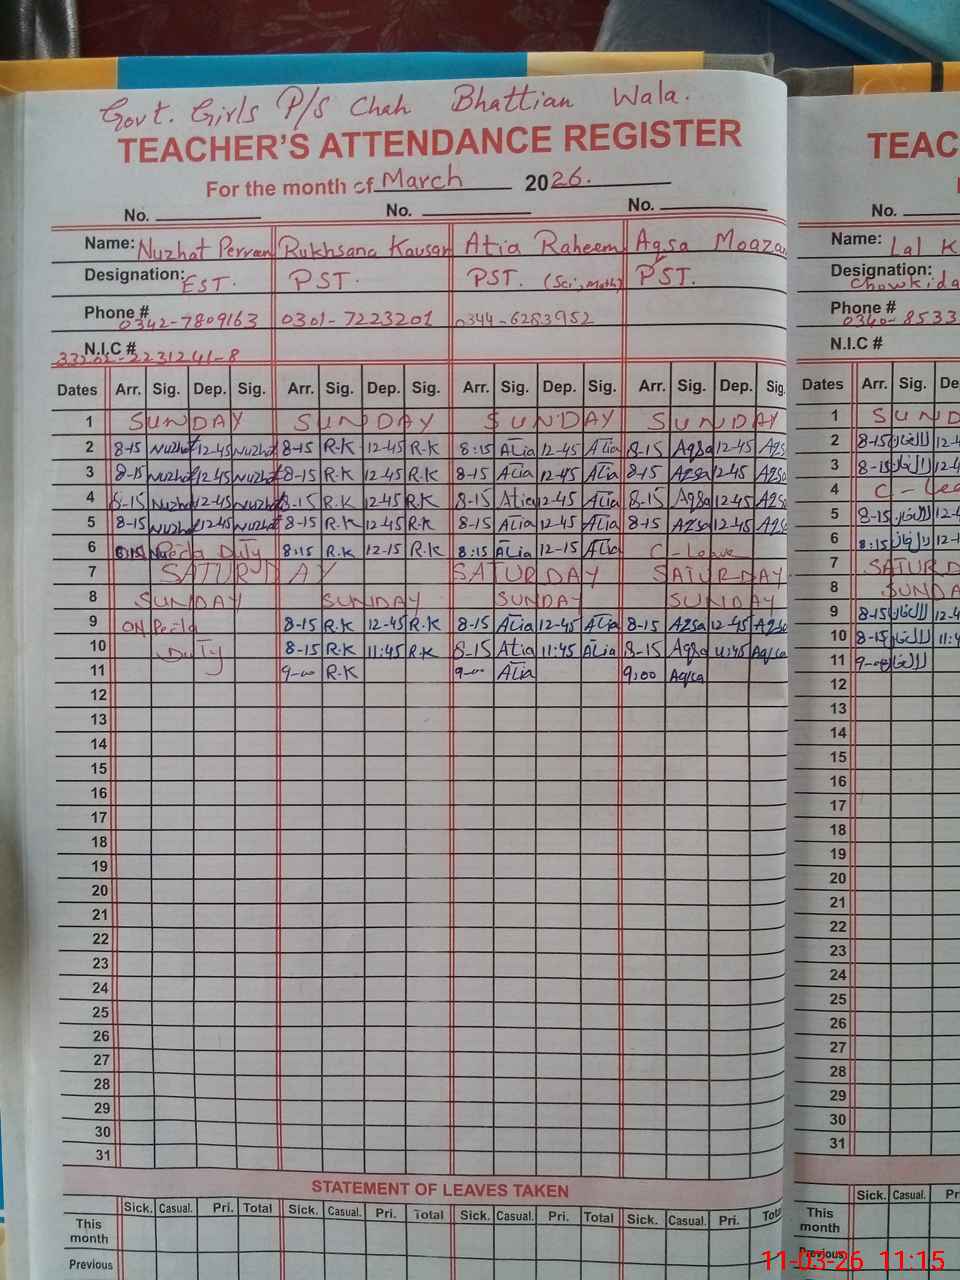 Govt. Girls P/S Chah Bhattian Wala.
TEACHER'S ATTENDANCE REGISTER TEAC
For the month of March 2026.
No. No. No. No.
Name: Nuzhat Perveen Rukhsana Kausar Atia Raheem Aqsa Moaza Name: Lal K
Designation: EST. PST. PST. (Sci, Math) PST. Designation: Chowkida
Phone # 0342-7809163 0301-7223201 0344-6283952 Phone # 0340-8533
N.I.C # N.I.C #
Dates Arr. Sig. Dep. Sig. Arr. Sig. Dep. Sig. Arr. Sig. Dep. Sig. Arr. Sig. Dep. Sig. Dates Arr. Sig. De
1 SUNDAY SUNDAY SUNDAY SUNDAY 1 SUND
2 8-15 Nuzhat 12-45 Nuzhat 8-15 R.K 12-45 R.K 8:15 Atia 12-45 Atia 8-15 Aqsa 12-45 Aqs 2 8-15 12-4
3 8-15 Nuzhat 12-45 Nuzhat 8-15 R.K 12-45 R.K 8-15 Atia 12-45 Atia 8-15 Aqsa 12-45 Aqsa 3 8-15 12-4
4 8-15 Nuzhat 12-45 Nuzhat 8-15 R.K 12-45 R.K 8-15 Atia 12-45 Atia 8-15 Aqsa 12-45 Aqsa 4 C-Lea
5 8-15 Nuzhat 12-45 Nuzhat 8-15 R.K 12-45 R.K 8-15 Atia 12-45 Atia 8-15 Aqsa 12-45 Aqs 5 8-15 12-4
6 8:15 Duty 8:15 R.K 12-15 R.K 8:15 Atia 12-15 Atia C-Leave 6 8:15 12-1
7 SATURDAY SATURDAY SATURDAY 7 SATURD
8 SUNDAY SUNDAY SUNDAY SUNDAY 8 SUNDA
9 ON 8-15 R.K 12-45 R.K 8-15 Atia 12-45 Atia 8-15 Aqsa 12-45 Aqsa 9 8-15 12-4
10 Duty 8-15 R.K 11:45 R.K 8-15 Atia 11:45 Atia 8-15 Aqsa 11:45 Aqsa 10 8-15 11:4
11 9-00 R.K 9-00 Atia 9:00 Aqsa 11 9-00
12 12
13 13
14 14
15 15
16 16
17 17
18 18
19 19
20 20
21 21
22 22
23 23
24 24
25 25
26 26
27 27
28 28
29 29
30 30
31 31
STATEMENT OF LEAVES TAKEN
Sick. Casual. Pri. Total Sick. Casual. Pri. Total Sick. Casual. Pri. Total Sick. Casual. Pri. Total Sick. Casual. Pr
This month This month
Previous Previous
11-03-26 11:15